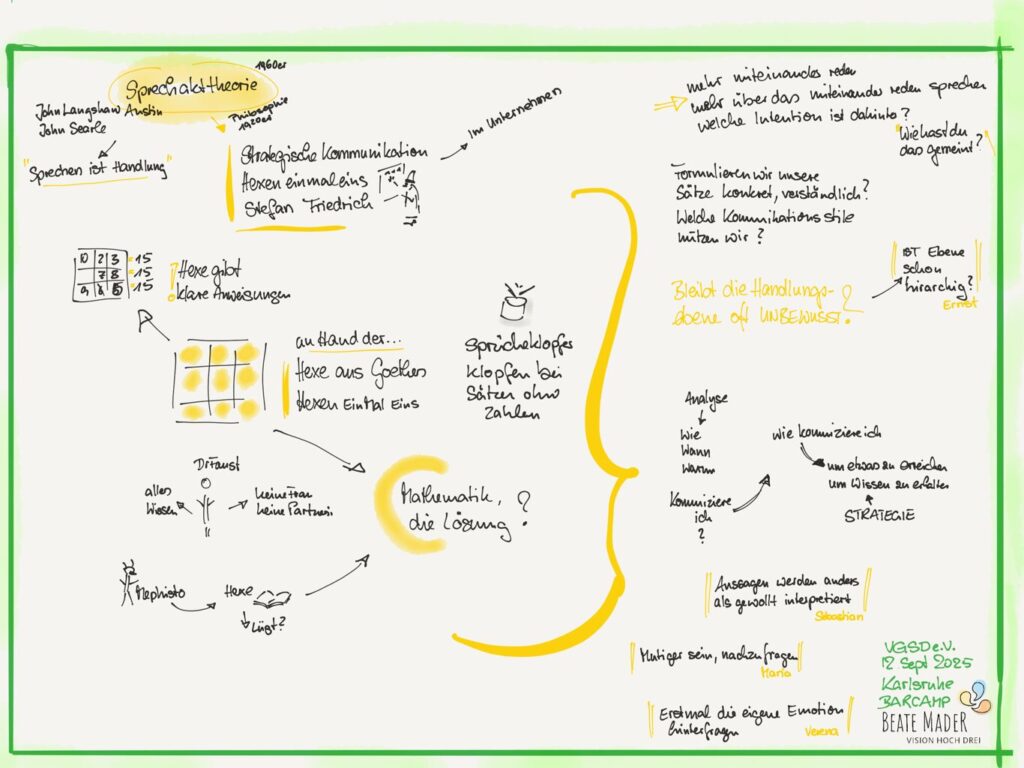 Sprechakttheorie
1960er
John Langshaw Austin
John Searle
"Sprechen ist Handlung"
Philosophie
1920er
Strategische Kommunikation
Hexen einmaleins
Stefan Friedrich
Im Unternehmen
10 2 3 15
7 8 15
9 15
! Hexe gibt
klare Anweisungen
an Hand der...
Hexe aus Goethes
Hexen EinMal Eins
Sprücheklopfer
klopfen bei
Sätzen ohne
Zahlen
Dr Faust
alles
Wissen
keine Frau
keine Partnerin
Mephisto
Hexe
Lügt?
Mathematik,
die Lösung?
mehr miteinander reden
mehr über das miteinander reden sprechen
welche Intention ist dahinter?
"Wie hast du
das gemeint?"
Formulieren wir unsere
Sätze konkret, verständlich?
Welche Kommunikationsstile
nützen wir?
Bleibt die Handlungs-
ebene oft UNBEWUSST?
IST Ebene
schon
hirarchig?
Ernst
Analyse
Wie
Wann
Warum
Kommiziere
ich
?
wie kommiziere ich
um etwas zu erreichen
um Wissen zu erfalten
STRATEGIE
Aussagen werden anders
als gewollt interpretiert
Sebastian
Mutiger sein, nachzufragen
Maria
Erstmal die eigene Emotion
hinterfragen
Verena
VGSD e.V.
12 Sept 2025
Karlsruhe
BARCAMP
BEATE MADER
VISION HOCH DREI